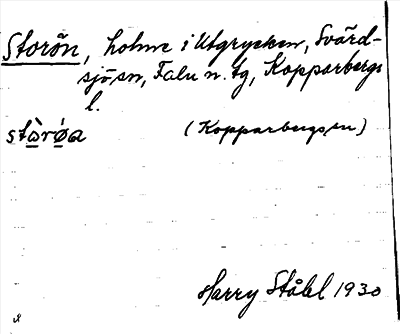 Storön, holme i Utgrycken, Svärd-
sjö sn, Falu n. tg, Kopparbergs
l.
stòrǿa (Kopparbergs sn)
Harry Ståhl 1930